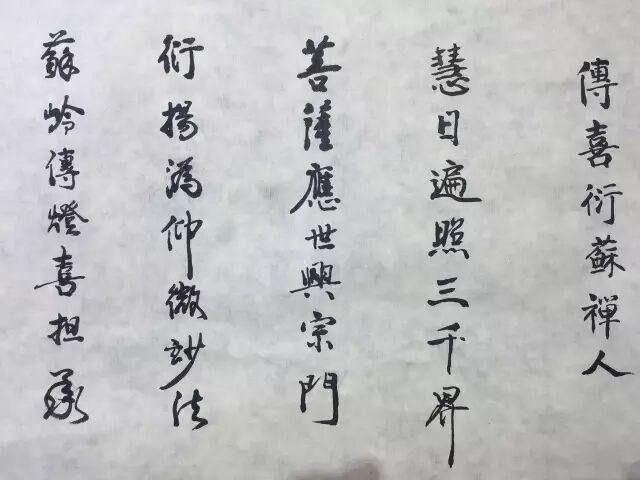 傳喜衍蘇禪人
慧日遍照三千界
菩薩應世興宗門
衍揚溈仰微妙法
蘇岭傳燈喜担承